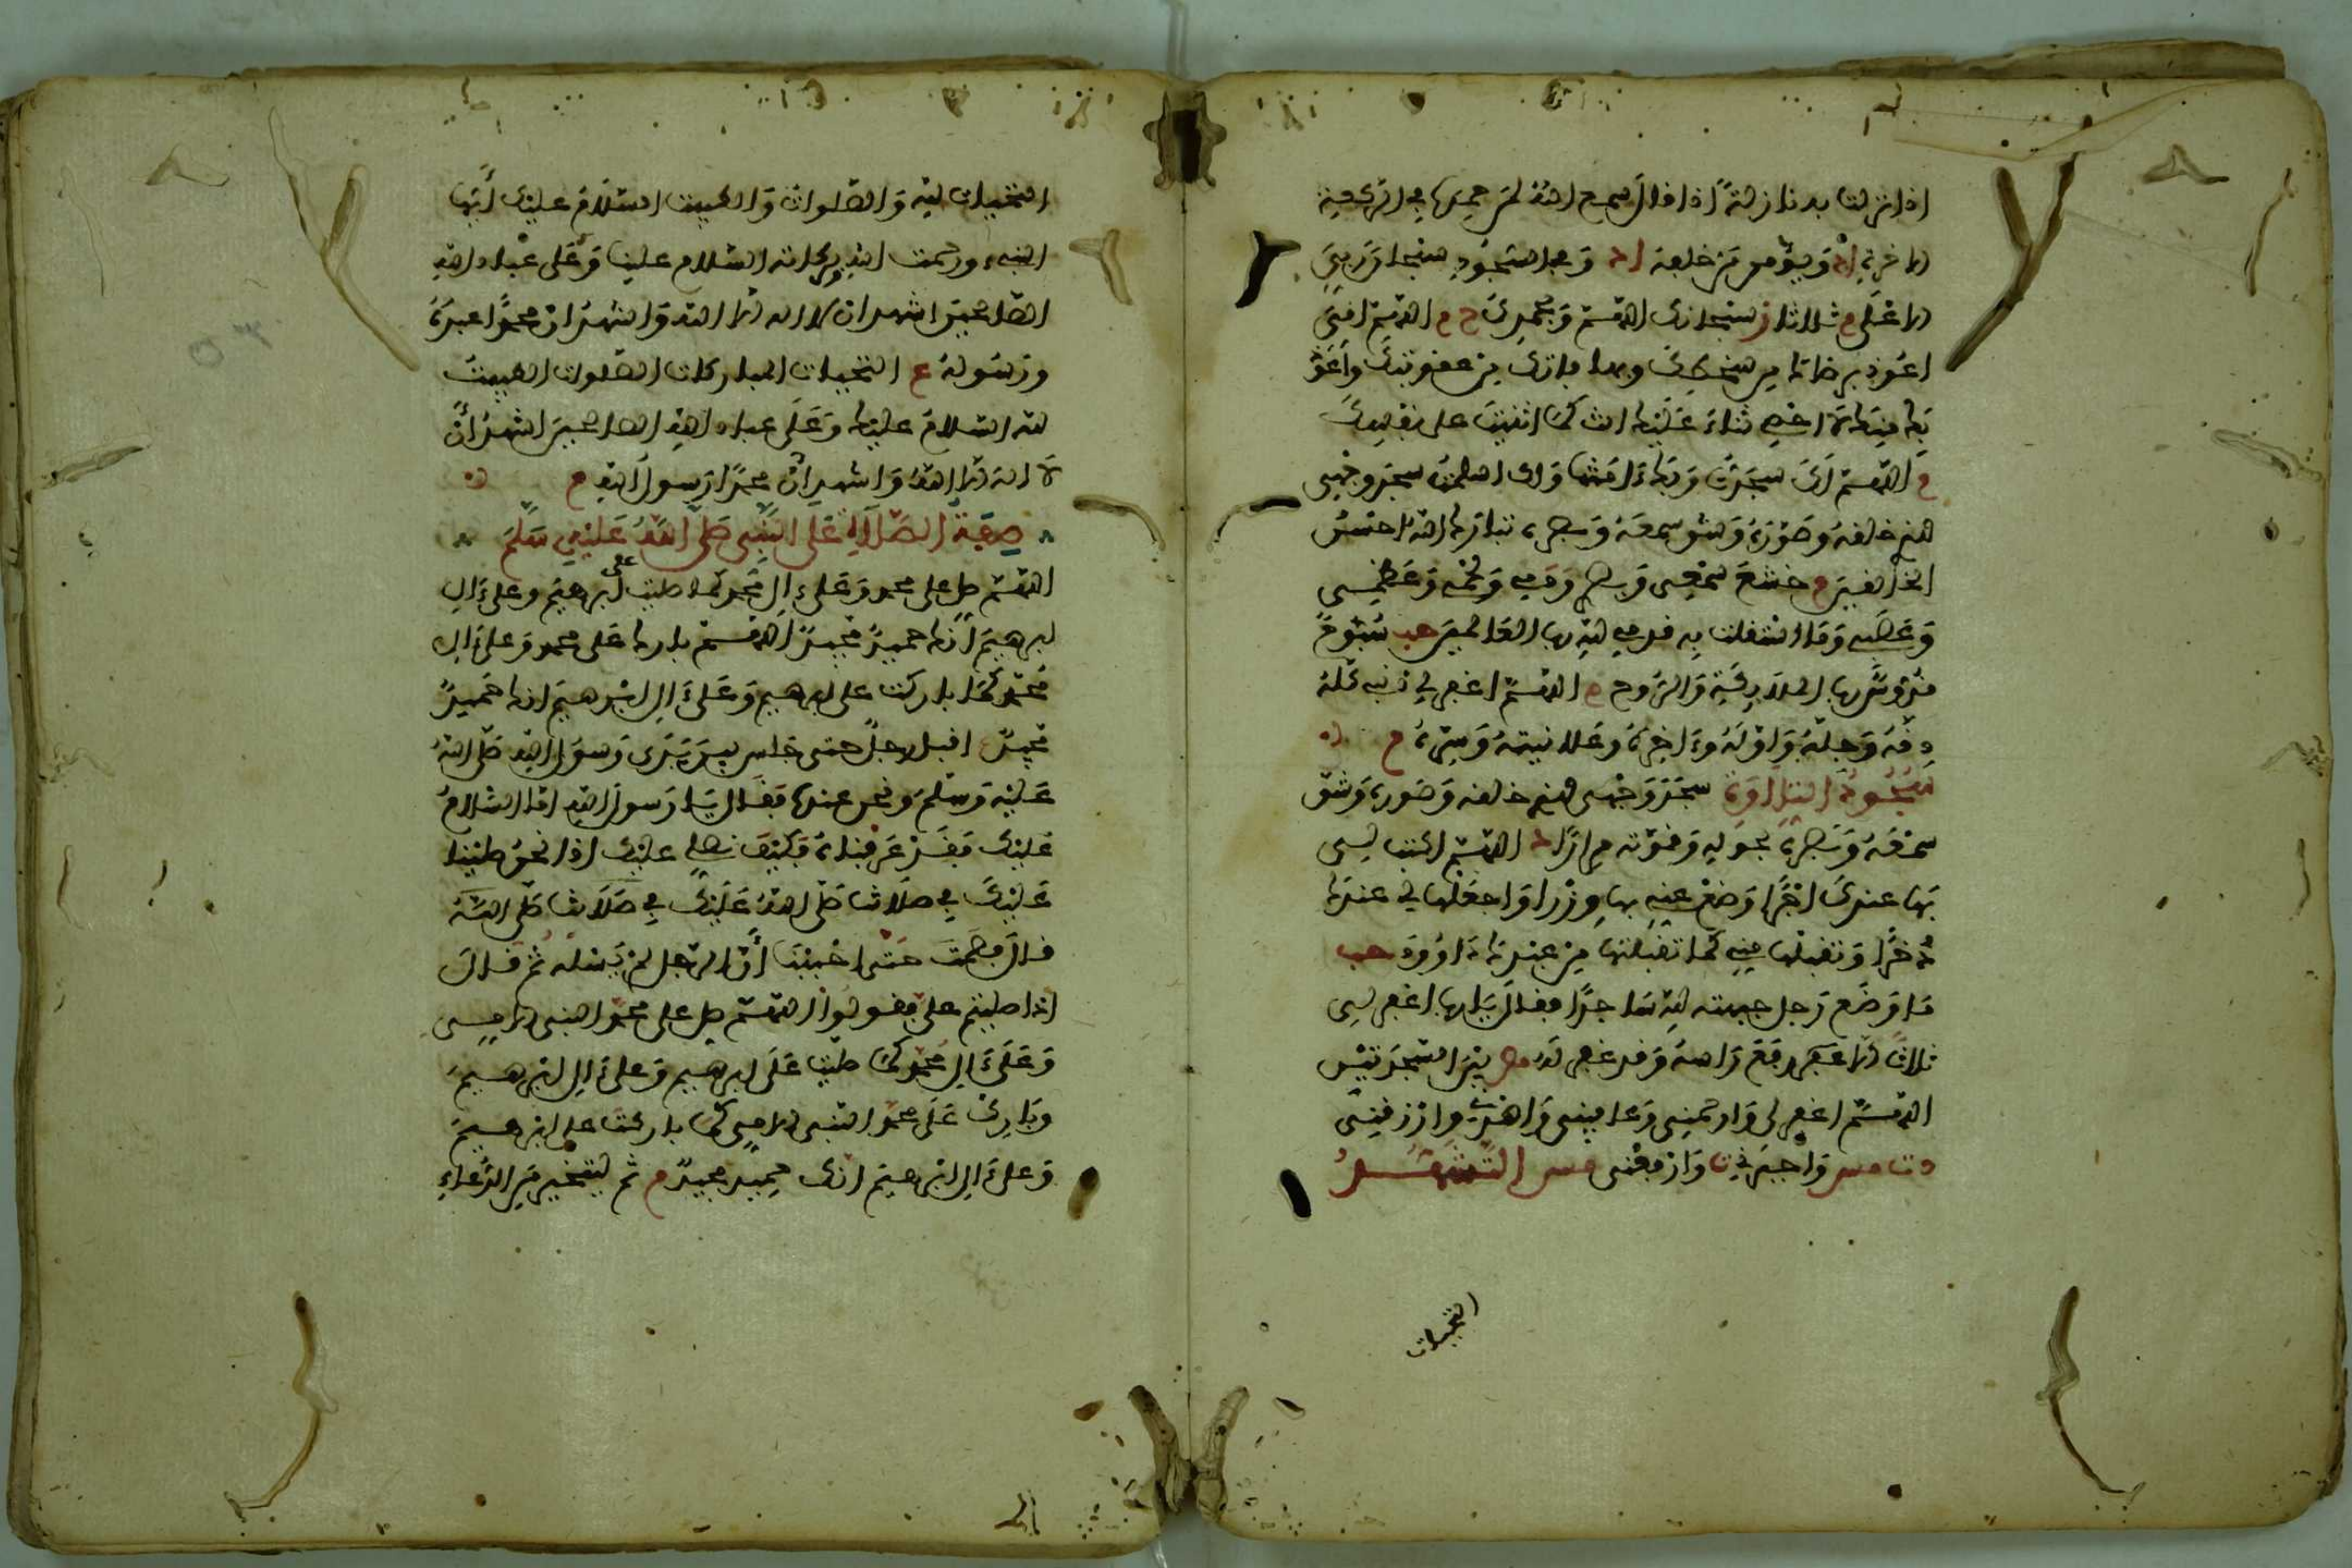 اذا نزلت به نازلة اذا قال سمع الله لمن حمده في الركعة
الاخرة اد ويؤمن من خلفه اد وفي السجود سبحان ربي
الاعلى م ثلاثا ز سبحانك اللهم وبحمدك خ م اللهم اني
اعوذ برضاك من سخطك وبمعافاتك من عقوبتك واعوذ
بك منك لا احصي ثناء عليك انت كما اثنيت على نفسك
م اللهم لك سجدت وبك ءامنت ولك اسلمت سجد وجهي
للذي خلقه وصوره وشق سمعه وبصره تبارك الله احسن
الخالقين م خشع سمعي وبصري ودمي ولحمي وعظمي
وعصبي وما استقلت به قدمي لله رب العالمين حب سبوح
قدوس رب الملائكة والروح م اللهم اغفر لي ذنبي كله
دقه وجله واوله وءاخره وعلانيته وسره م
سجود التلاوة سجد وجهي للذي خلقه وصوره وشق
سمعه وبصره بحوله وقوته مرارا د اللهم اكتب لي
بها عندك اجرا وضع عني بها وزرا واجعلها لي عندك
ذخرا وتقبلها مني كما تقبلتها من عبدك داوود حب
ما وضع رجل جبهته لله ساجدا فقال يا رب اغفر لي
ثلاثا الا رفع راسه وقد غفر له مص بين السجدتين
اللهم اغفر لي وارحمني وعافني واهدني وارزقني
د ت مس واجبرني ت وارفعني مس التشهد
التحيات
التحيات لله والصلوات والطيبت السلام عليك أيها
النبيء ورحمت الله وبركاته السلام علينا وعلى عباد الله
الصالحين اشهد ان لا اله الا الله واشهد ان محمدا عبده
ورسوله ع التحيات المباركات الصلوات الطيبت
لله السلام عليك وعلى عباد الله الصالحين اشهد أن
لا اله الا الله واشهد ان محمدا رسول الله م
صفة الصلاة على النبي صلى الله عليه وسلم
اللهم صل على محمد وعلى ءال محمد كما صليت على ابرهيم وعلى ءال
ابرهيم انك حميد مجيد اللهم بارك على محمد وعلى ءال
محمد كما باركت على ابرهيم وعلى ءال ابرهيم انك حميد
مجيد اقبل رجل حتى جلس بين يدى رسول الله صلى الله
عليه وسلم ونحن عنده فقال يا رسول الله اما السلام
عليك فقد عرفناه فكيف نصلي عليك اذا نحن صلينا
عليك في صلاتنا صلى الله عليك في صلاتنا صلى الله
قال فصمت حتى احببنا أن الرجل لم يسئله ثم قال
اذا صليتم علي فقولوا اللهم صل على محمد النبي الامي
وعلى ءال محمد كما صليت على ابرهيم وعلى ءال ابرهيم
وبارك على محمد النبي الامي كما باركت على ابرهيم
وعلى ءال ابرهيم انك حميد مجيد م ثم ليتخير من الدعاء